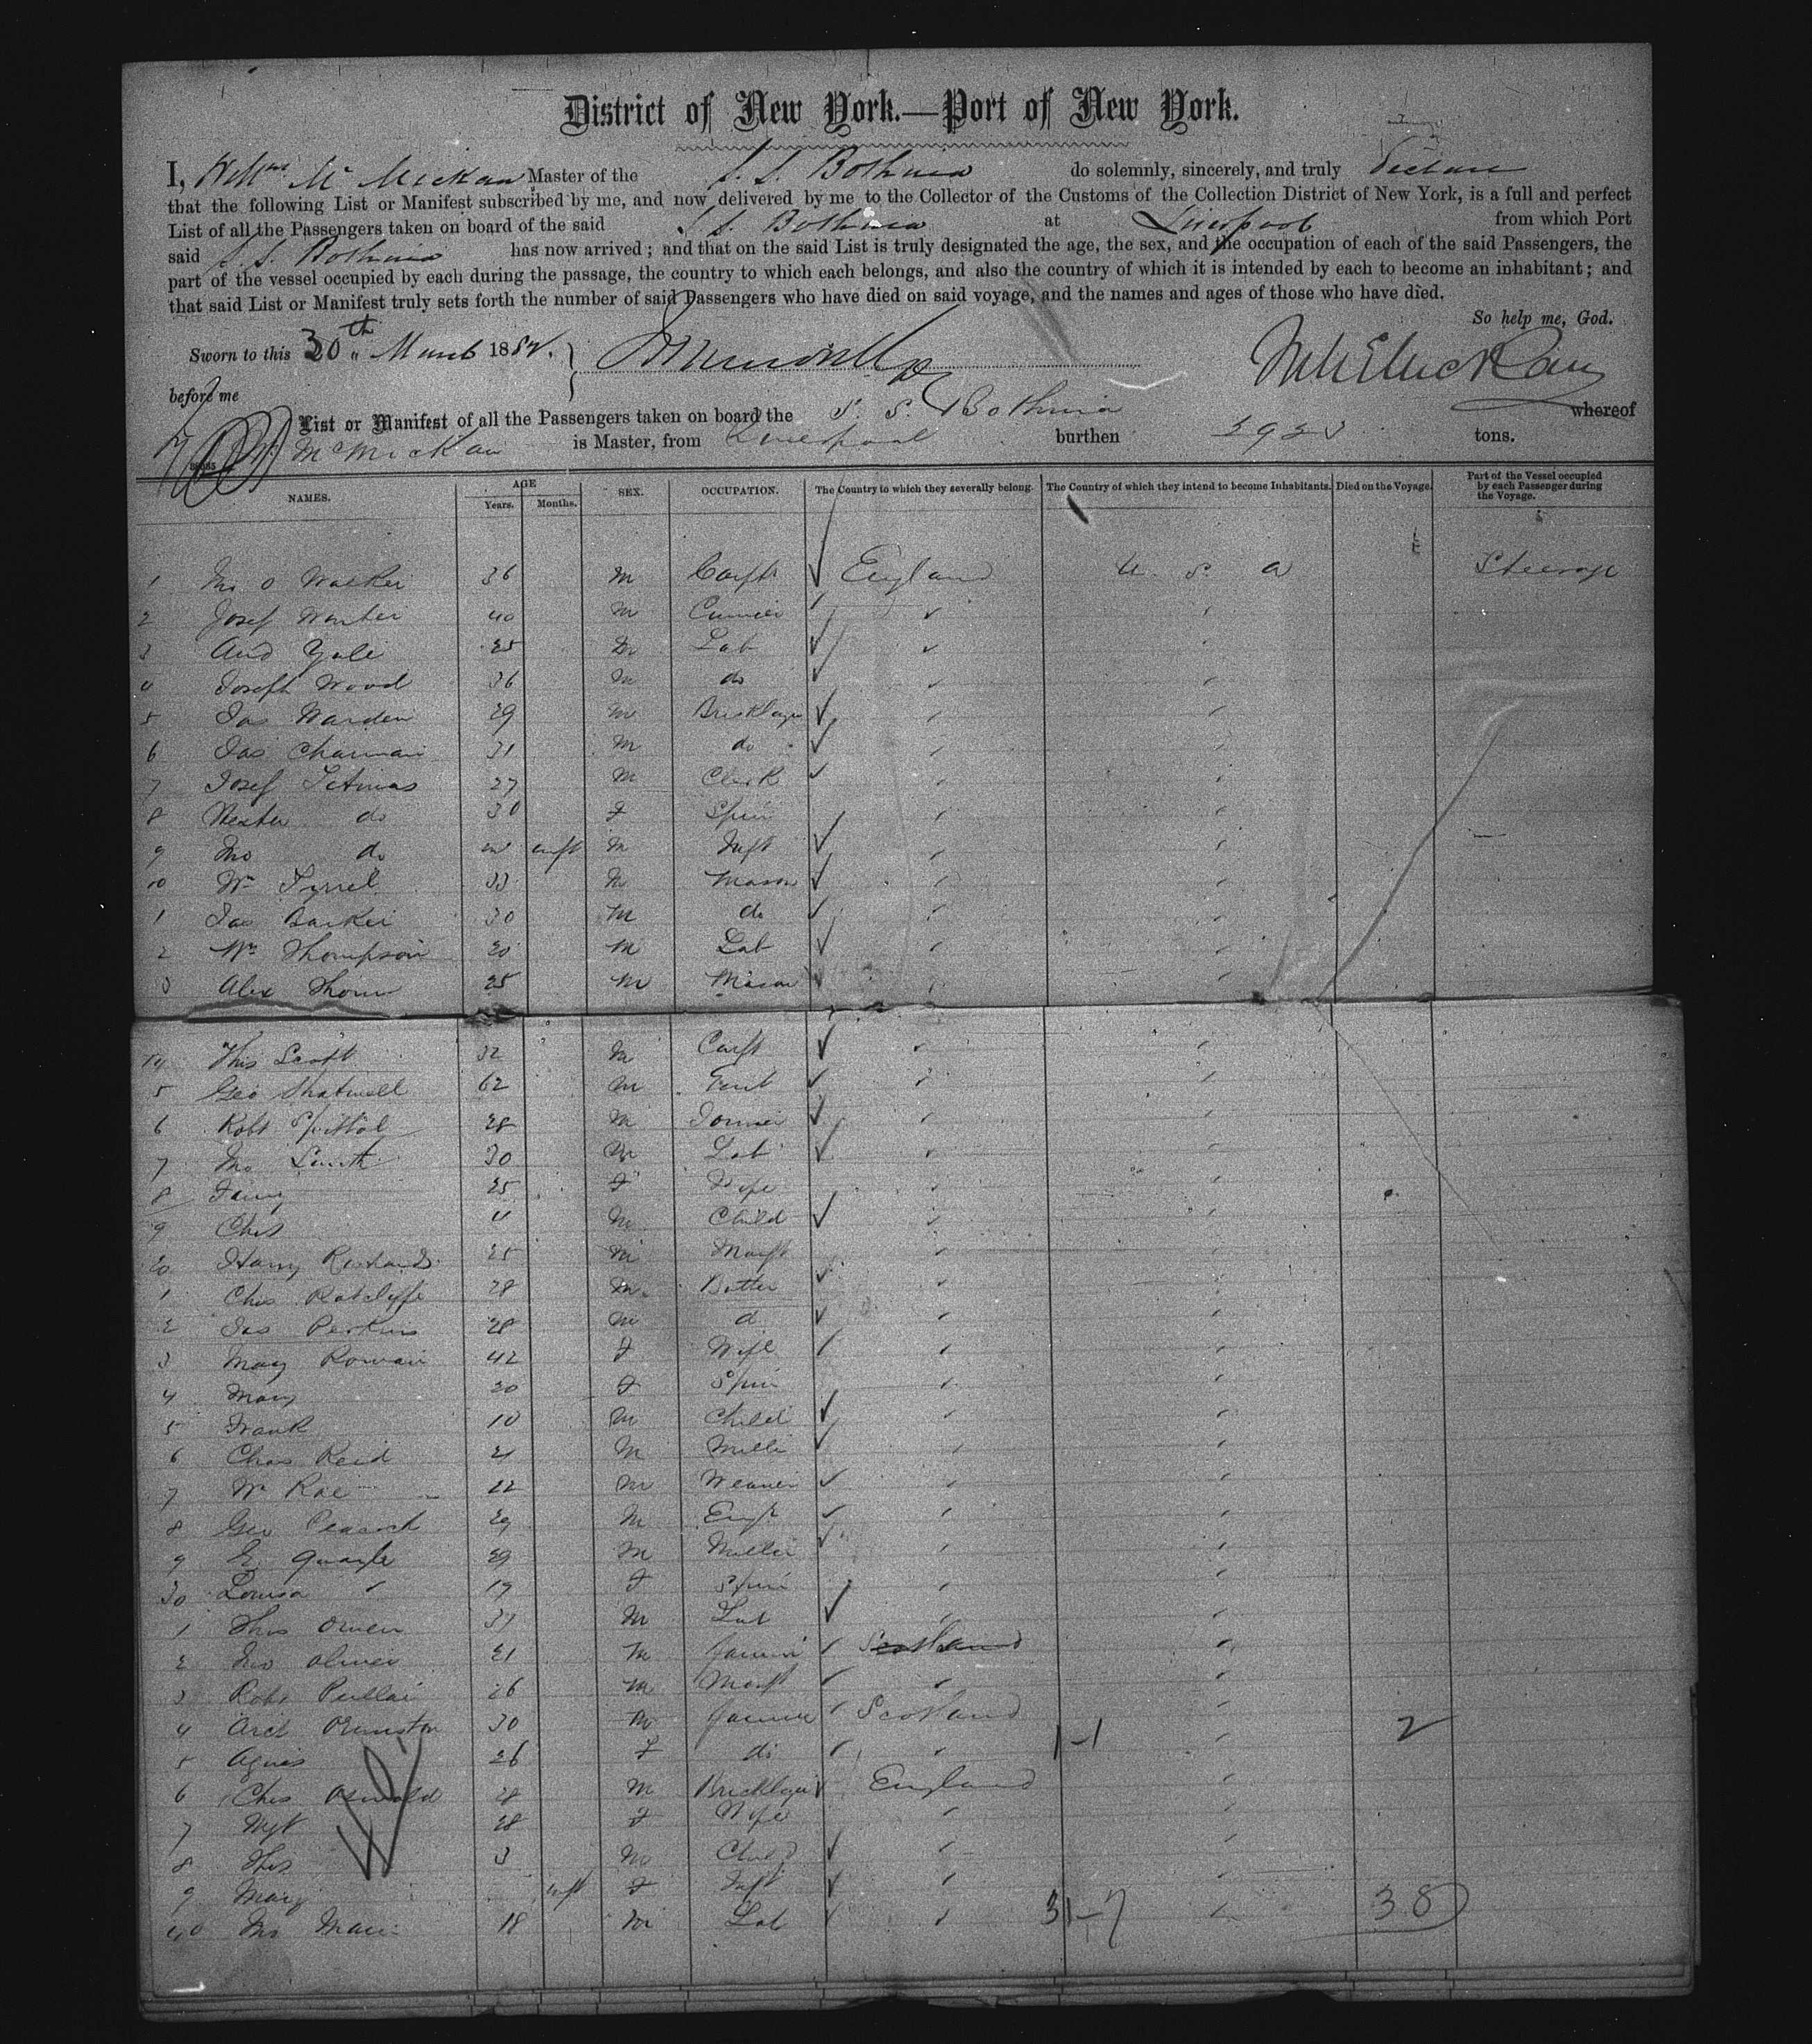 District of New York.—Port of New York.
I, Willm Mc Mickan Master of the S. S. Bothnia do solemnly, sincerely, and truly declare
that the following List or Manifest subscribed by me, and now delivered by me to the Collector of the Customs of the Collection District of New York, is a full and perfect
List of all the Passengers taken on board of the said S S. Bothnia at Liverpool from which Port
said S. S. Bothnia has now arrived; and that on the said List is truly designated the age, the sex, and the occupation of each of the said Passengers, the
part of the vessel occupied by each during the passage, the country to which each belongs, and also the country of which it is intended by each to become an inhabitant; and
that said List or Manifest truly sets forth the number of said Passengers who have died on said voyage, and the names and ages of those who have died.
So help me, God.
Sworn to this 30th March 188
before me
List or Manifest of all the Passengers taken on board the S. S. Bothnia whereof
McMickan is Master, from Liverpool burthen tons.
NAMES. AGE Years. Months. SEX. OCCUPATION. The Country to which they severally belong. The Country of which they intend to become Inhabitants. Died on the Voyage. Part of the Vessel occupied by each Passenger during the Voyage.
1 Walker 36 M England U. S. a Steerage
2 Josef 40 M
3 And Yule 25 M Lab
4 Joseph Wood 36 M do
5 Jas Warden 29 M Bricklayer
6 Jas Charman 31 M do
7 Josef 27 M Clerk
8 Hester do 30 F Spin
9 Jno do inft M Inft
10 Wm Tyrrel 33 M Mason
1 Jas Barker 30 M do
2 Wm Thompson 20 M Lab
3 Alex Thom 25 M Mason
14 Thos Scott 32 M
5 Geo Shatwell 62 M
6 Robt Spittal 28 M Joiner
7 Jno Smith 30 M Lab
8 Fanny 25 F Wife
9 Chas M Child
20 Harry Richards 25 M
1 Chas Ratclyffe 28 M
2 Jas Perkins 28 M d
3 Mary Rowan 42 F Wife
4 Mary 20 F Spin
5 Frank 10 M Child
6 Chas Reid 21 M
7 Wm Rae 22 M Weaver
8 Geo Peacock 29 M Engr
9 E Quayle 29 M Miller
30 Louisa " 19 F Spin
1 Thos Owen M Lab
2 Jno Oliver 21 M Scotland
3 Robt 26 M
4 Arch Ormiston 30 M Farmer Scotland
5 Agnes 26 F do 1-1 2
6 Chas Oswald 28 M Bricklayer England
7 Mgt 28 F Wife
8 Thos 3 M Child
9 Mary inft F Inft
40 Jno 18 M Lab 31-7 38